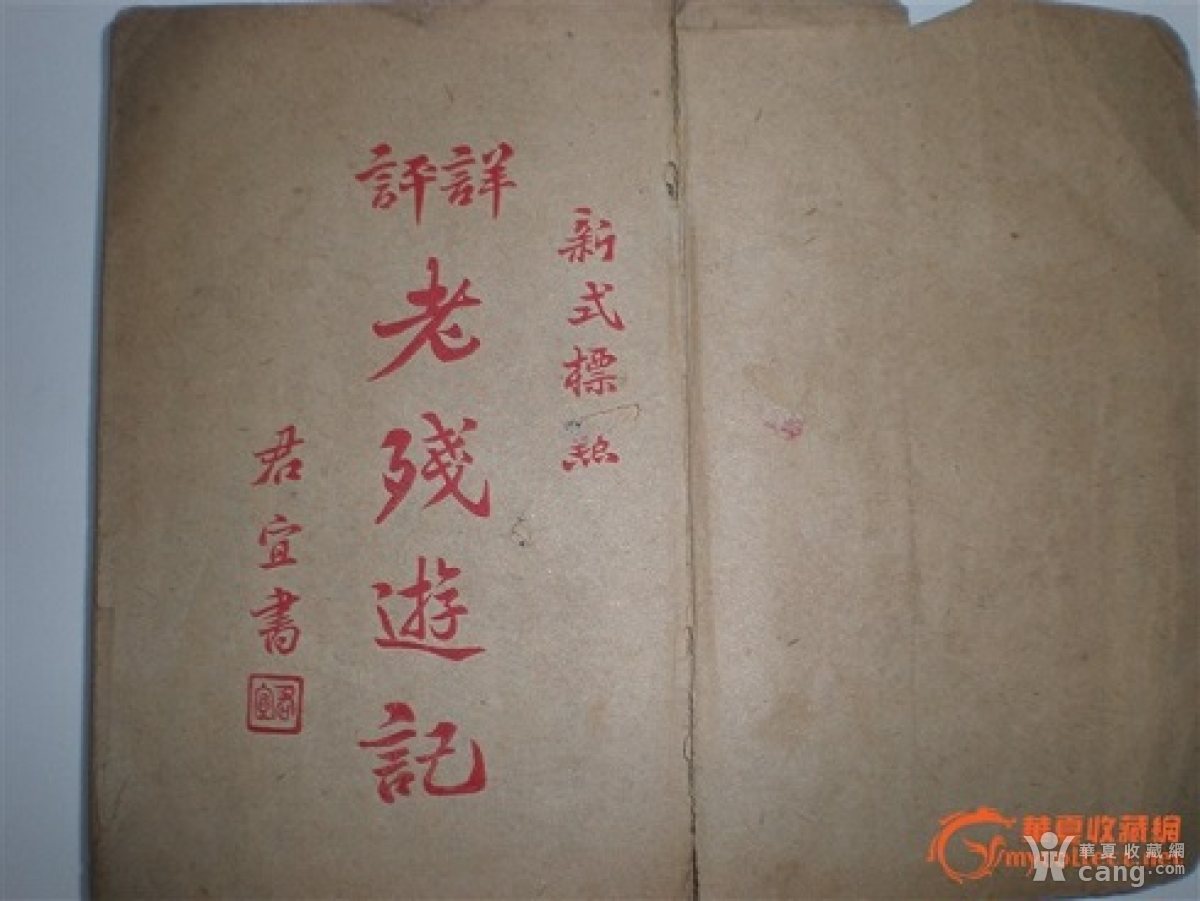 新式標點
詳評
老殘遊記
君宜書
君宜
華夏收藏網
華夏收藏網
cang.com